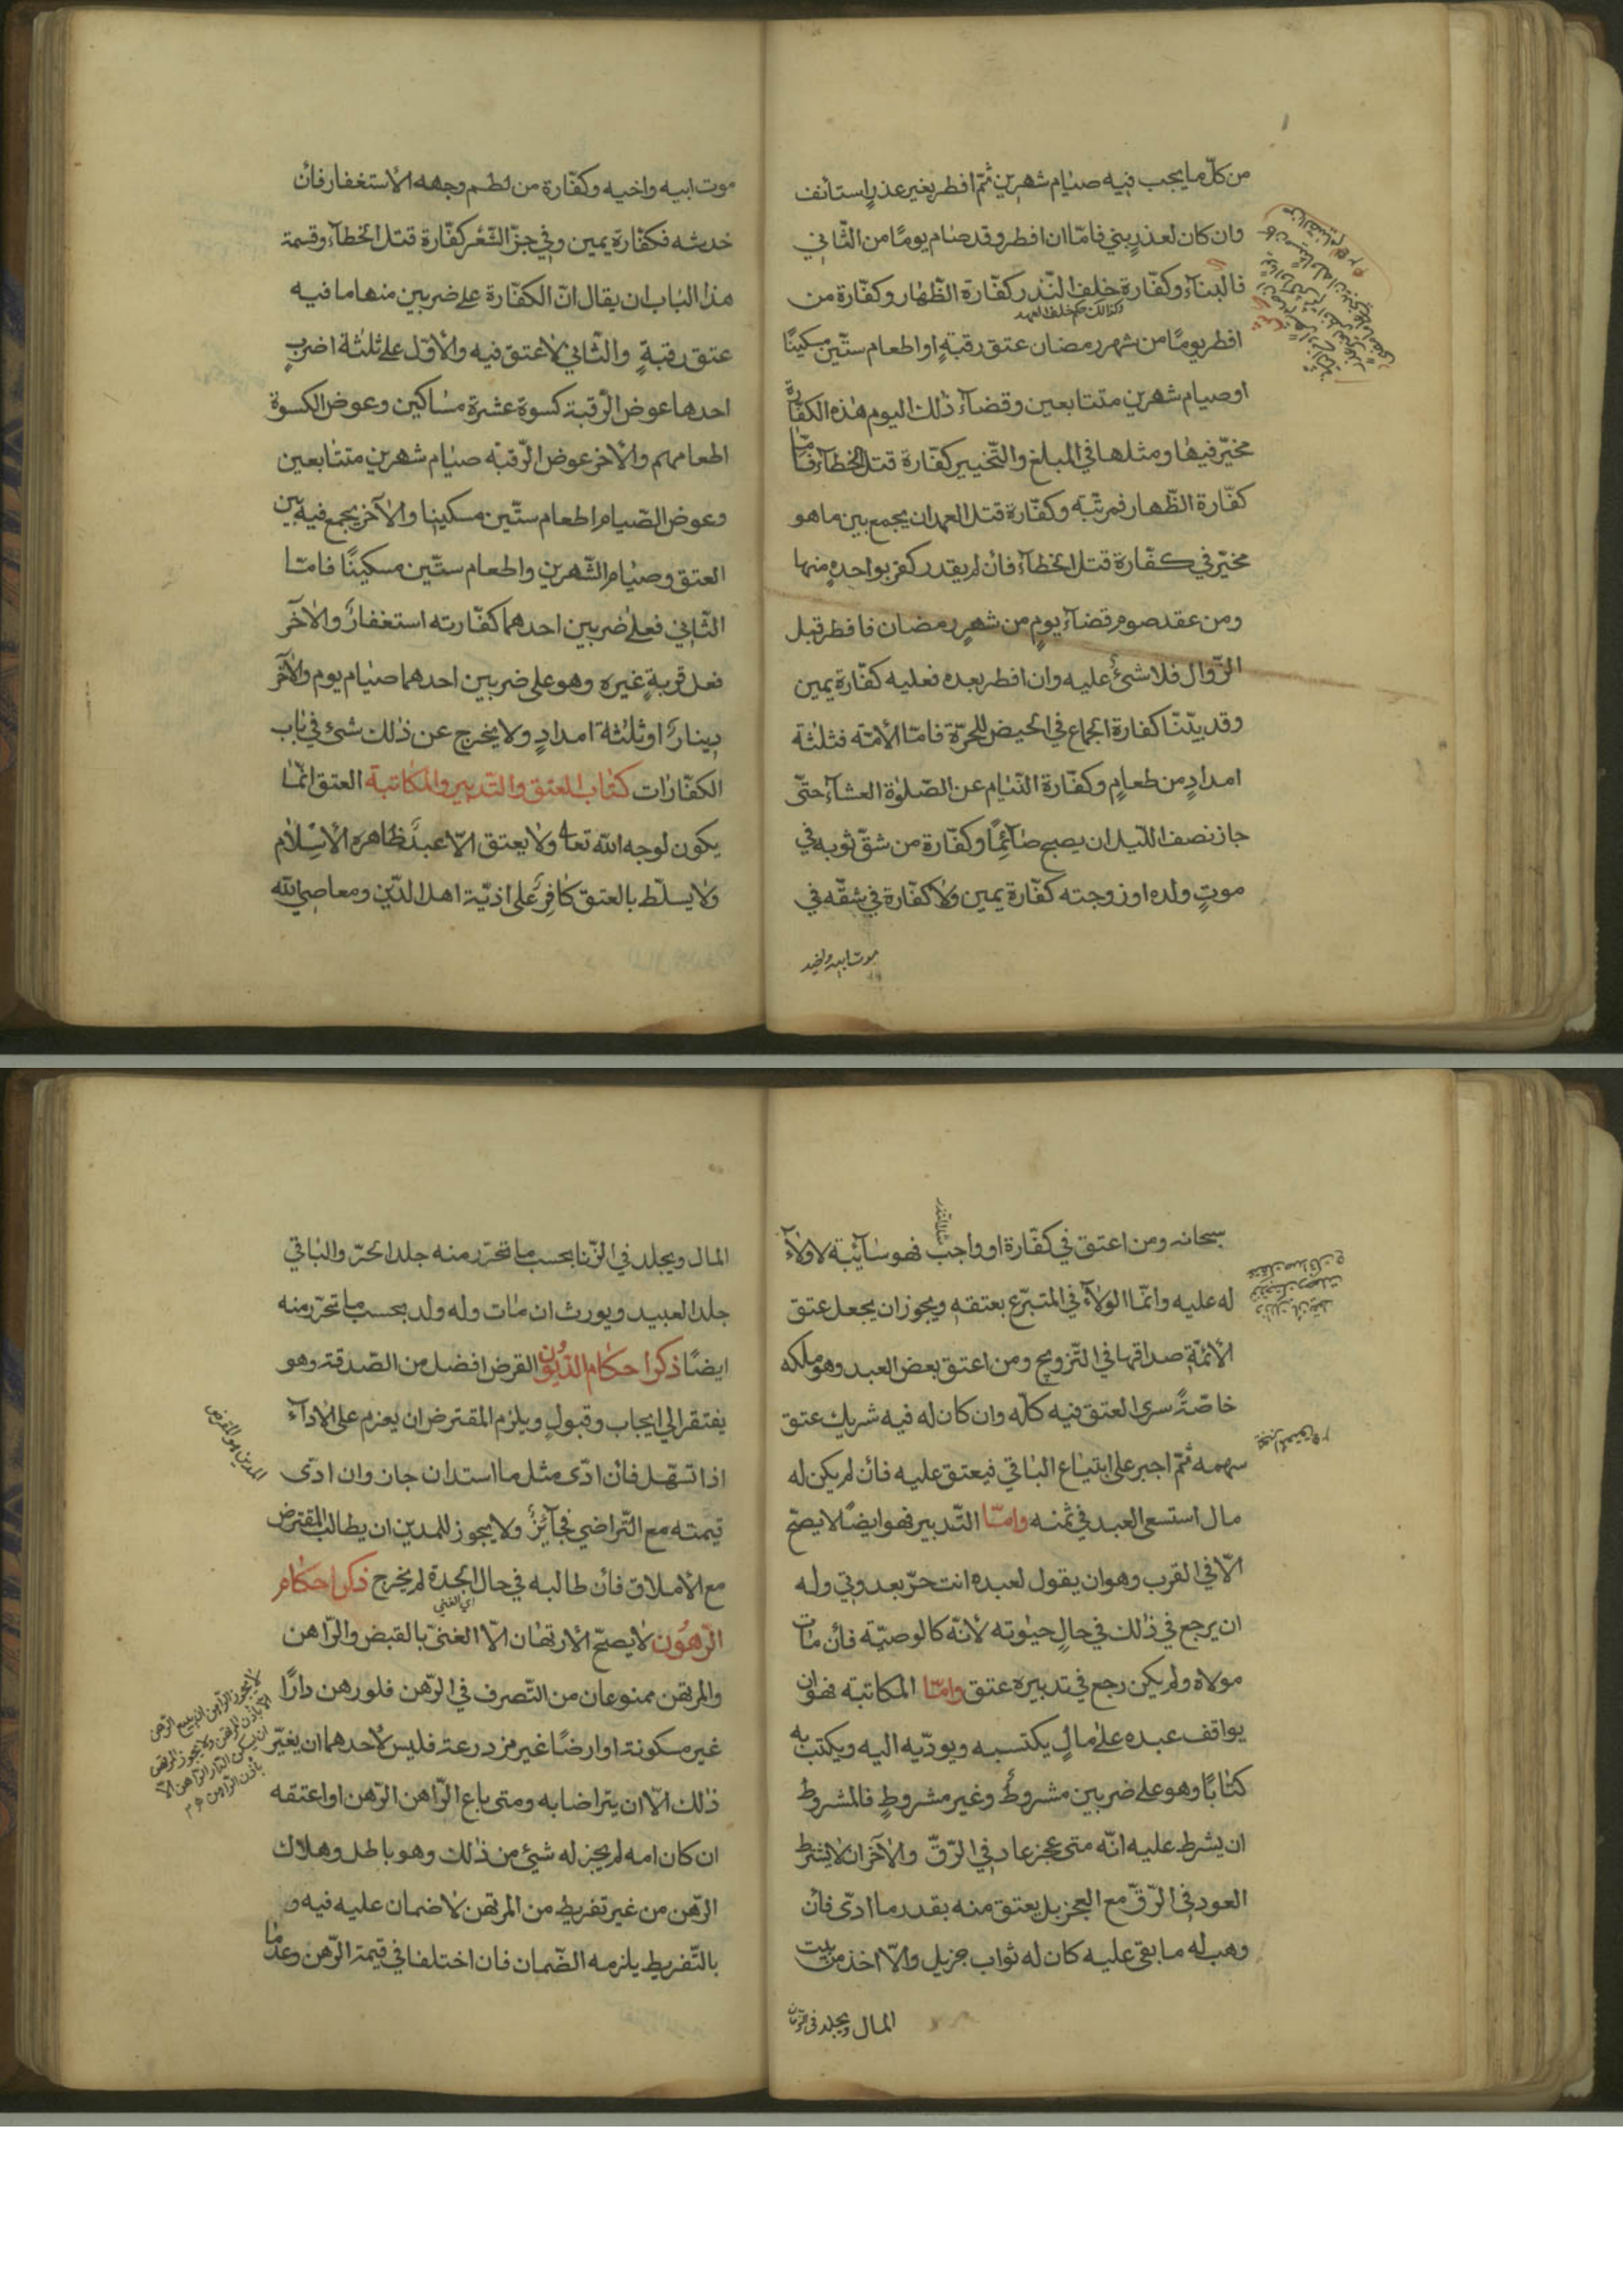 من كلّ ما يجب فيه صيام شهرين ثمّ افطر بغير عذرٍ استأنف
وان كان لعذرٍ بني فامّا ان افطر وقد صام يومًا من الثّاني
فالبنآء وكفّارة خلف النّذر كفّارة الظّهار وكفّارة من
وكذلك حكم خلف العهد
افطر يومًا من شهر رمضان عتق رقبةٍ او اطعام ستّين مسكينًا
او صيام شهرين متتابعين وقضآء ذلك اليوم هذه الكفّارة
مخيّر فيها ومثلها في المبلغ والتّخيير كفّارة قتل الخطآء فامّا
كفّارة الظّهار فمرتّبة وكفّارة قتل العمد ان يجمع بين ما هو
مخيّر في كفّارة قتل الخطآء فأن لم يقدر كفر بواحدةٍ منها
ومن عقد صوم قضآء يومٍ من شهر رمضان فافطر قبل
الزّوال فلا شئ عليه وان افطر بعده فعليه كفّارة يمين
وقد بيّنّا كفارة الجماع في الحيض للحرّة فامّا الأمة فثلثة
امدادٍ من طعامٍ وكفّارة النّيام عن الصّلوة العشآء حتّى
جاز نصف اللّيل ان يصبح صآئمًا وكفّارة من شقّ ثوبه في
موتٍ ولده او زوجته كفّارة يمين ولا كفّارة في شقّه في
موت ابيه واخيه
موت ابيه واخيه وكفّارة من لطم وجهه الأستغفار فأن
خدشه فكفّارة يمين وفي جزّ الشّعر كفّارة قتل الخطآء وقسمة
هذا الباب ان يقال انّ الكفّارة على ضربين منها ما فيه
عتق رقبةٍ والثّاني لا عتق فيه والأوّل على ثلثة اضربٍ
احدها عوض الرّقبة كسوة عشرة مساكين وعوض الكسوة
اطعامهم والأخر عوض الرّقبة صيام شهرين متتابعين
وعوض الصّيام اطعام ستّين مسكينا والآخر يجمع فيه بين
العتق وصيام الشّهرين واطعام ستّين مسكينًا فامّا
الثّاني فعلى ضربين احدهما كفّارته استغفارٌ والآخر
فعل قربةٍ غيره وهو على ضربين احدهما صيام يوم والآخر
دينارٌ او ثلثة امدادٍ ولا يخرج عن ذلك شئ في باب
الكفّارات كتاب العتق والتّدبير والمكاتبة العتق انّما
يكون لوجه الله تعا ولا يعتق الّا عبدٌ ظاهره الأسلام
ولا يسلّط بالعتق كافرٌ على اذيّة اهل الدّين ومعاصي الله
سبحانه ومن اعتق في كفّارة او واجب فهو سآئبة لا ولآء
له عليه وانّما الولآء في المتبرّع بعتقه ويجوز ان يجعل عتق
الأمة صداقها في التّزويج ومن اعتق بعض العبد وهو ملكه
خاصّةً سرى العتق فيه كلّه وان كان له فيه شريك عتق
سهمه ثمّ اجبر على ابتياع الباقي فيعتق عليه فأن لم يكن له
مال استسعى العبد في ثمنه وامّا التّدبير فهو ايضًا لا يصحّ
الّا في القرب وهو ان يقول لعبده انت حرّ بعد موتي وله
ان يرجع في ذلك في حال حيوته لأنّه كالوصيّة فأن مات
مولاه ولم يكن رجع في تدبيره عتق وامّا المكاتبة فهو ان
يواقف عبده على مالٍ يكتسبه ويودّيه اليه ويكتب به
كتابًا وهو على ضربين مشروطٌ وغير مشروطٍ فالمشروط
ان يشرط عليه انّه متى عجز عاد في الرّقّ والآخر ان لا يشرط
العود في الرّقّ مع العجز بل يعتق منه بقدر ما ادّى فأن
وهب له ما بقى عليه كان له ثواب جزيل والّا اخذ من بيت
المال ويجلد في الزنا
المال ويجلد في الزّنا بحسب ما تحرّر منه جلد الحرّ والباقي
جلد العبيد ويورث ان مات وله ولد بحسب ما تحرّر منه
ايضًا ذكر احكام الدّيون القرض افضل من الصّدقة وهو
يفتقر الى ايجاب وقبولٍ ويلزم المقترض ان يعزم على الادآء
المدين هو المقرض
اذا تسهّل فأن ادّى مثل ما استدان جاز وان ادّى
قيمته مع التّراضي فجآئزٌ ولا يجوز للمدين ان يطالب المقترض
مع الأملاق فأن طالبه في حال الجدة لم يخرج ذكر احكام
اي الغني
الرّهون لا يصحّ الأرتهان الّا الغنيّ بالقبض والرّاهن
والمرتهن ممنوعان من التّصرف في الرّهن فلو رهن دارًا
غير مسكونة او ارضًا غير مزدرعة فليس لأحدهما ان يغيّر
ذلك الّا ان يتراضا به ومتى باع الرّاهن الرّهن او اعتقه
لا يجوز للراهن ان يبيع الرّهن
الّا بأذن المرتهن ولا يجوز للمرتهن
ان يسكن الدّار الرّاهن الّا
بأذن الرّاهن
ان كان امه لم يجز له شيئ من ذلك وهو باطل وهلاك
الرّهن من غير تفريط من المرتهن لا ضمان عليه فيه و
بالتّفريط يلزمه الضّمان فان اختلفا في قيمة الرّهن وعدما